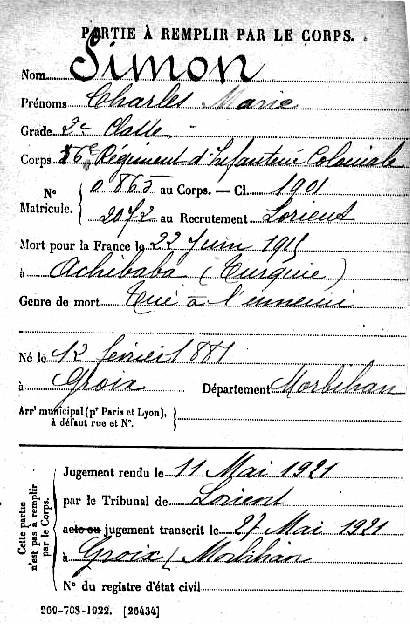 PARTIE À REMPLIR PAR LE CORPS.
Nom Simon
Prénoms Charles Marie
Grade 2e Classe
Corps 6e Régiment d'Infanterie Coloniale
Nº Matricule. { 0.865 au Corps. — Cl. 1901
2072 au Recrutement Lorient
Mort pour la France le 22 Juin 1915
à Achibaba (Turquie)
Genre de mort Tué à l'ennemi
Né le 12 février 1881
à Groix Département Morbihan
Arrt municipal (pr Paris et Lyon), à défaut rue et Nº.
Cette partie n'est pas à remplir par le Corps.
Jugement rendu le 11 Mai 1921
par le Tribunal de Lorient
acte ou jugement transcrit le 27 Mai 1921
à Groix / Morbihan
Nº du registre d'état civil
260-708-1922. [26434]